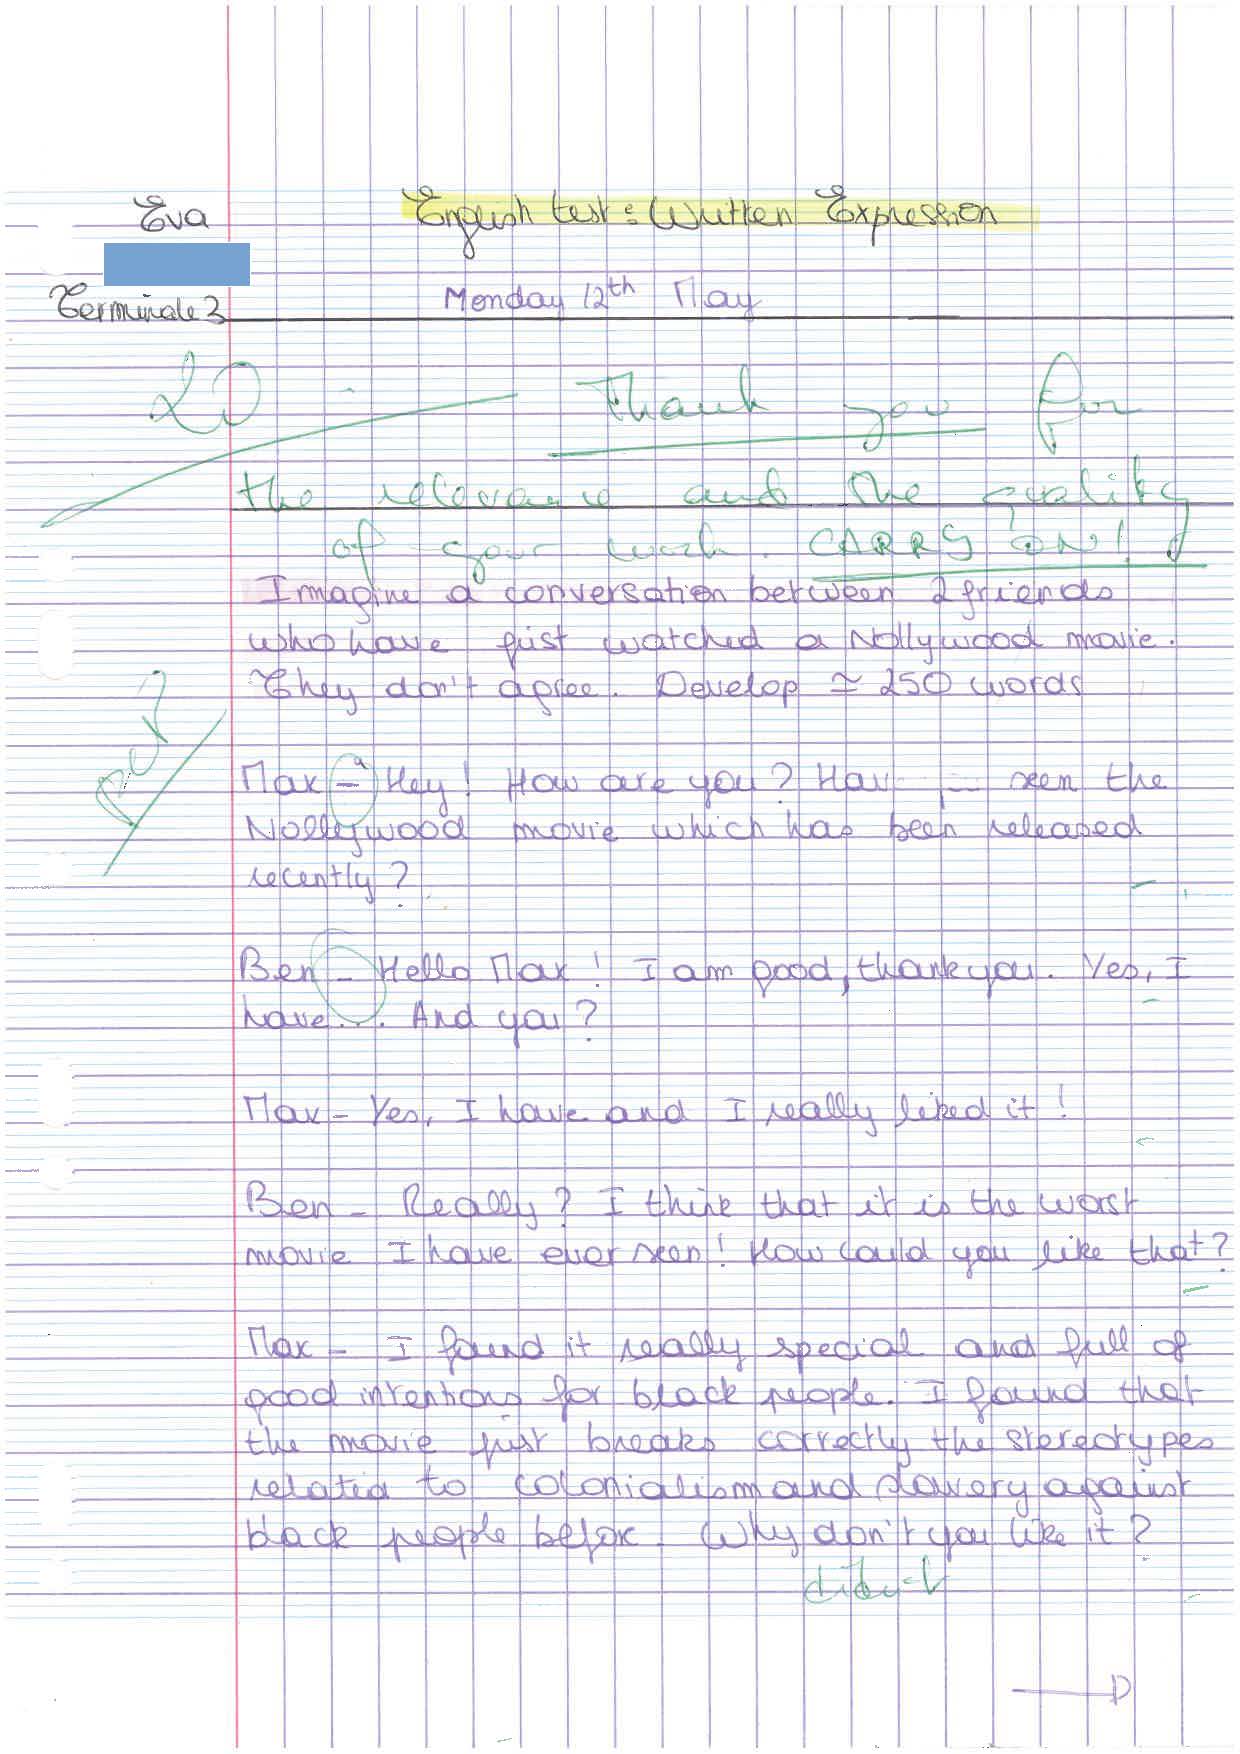 Eva
English test : Written Expression
Terminale 3
Monday 12th May
20
Thank you for
the relevance and the quality
of your work. CARRY ON!
Imagine a conversation between 2 friends
who have just watched a Nollywood movie.
They don't agree. Develop ≃ 250 words
Max - Hey! How are you? Hav seen the
Nollywood movie which has been released
recently?
Ben - Hello Max! I am good, thank you. Yes, I
have... And you?
Max - Yes, I have and I really liked it!
Ben - Really? I think that it is the worst
movie I have ever seen! How could you like that?
Max - I found it really special and full of
good intentions for black people. I found that
the movie just breaks correctly the stereotypes
related to colonialism and slavery against
black people before. Why don't you like it?
didn't